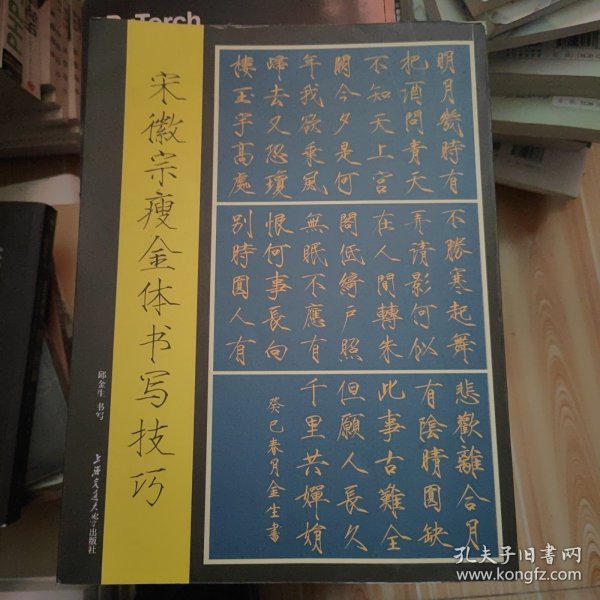 Torch
PHP
宋徽宗瘦金体书写技巧
邱金生 书写
上海交通大学出版社
明月幾時有
把酒問青天
不知天上宮
闕今夕是何
年我欲乘風
歸去又恐瓊
樓玉宇高處
不勝寒起舞
弄清影何似
在人間轉朱
閣低綺戶照
無眠不應有
恨何事長向
別時圓人有
悲歡離合月
有陰晴圓缺
此事古難全
但願人長久
千里共嬋娟
癸巳春月金生書
孔夫子旧书网
www.kongfz.com